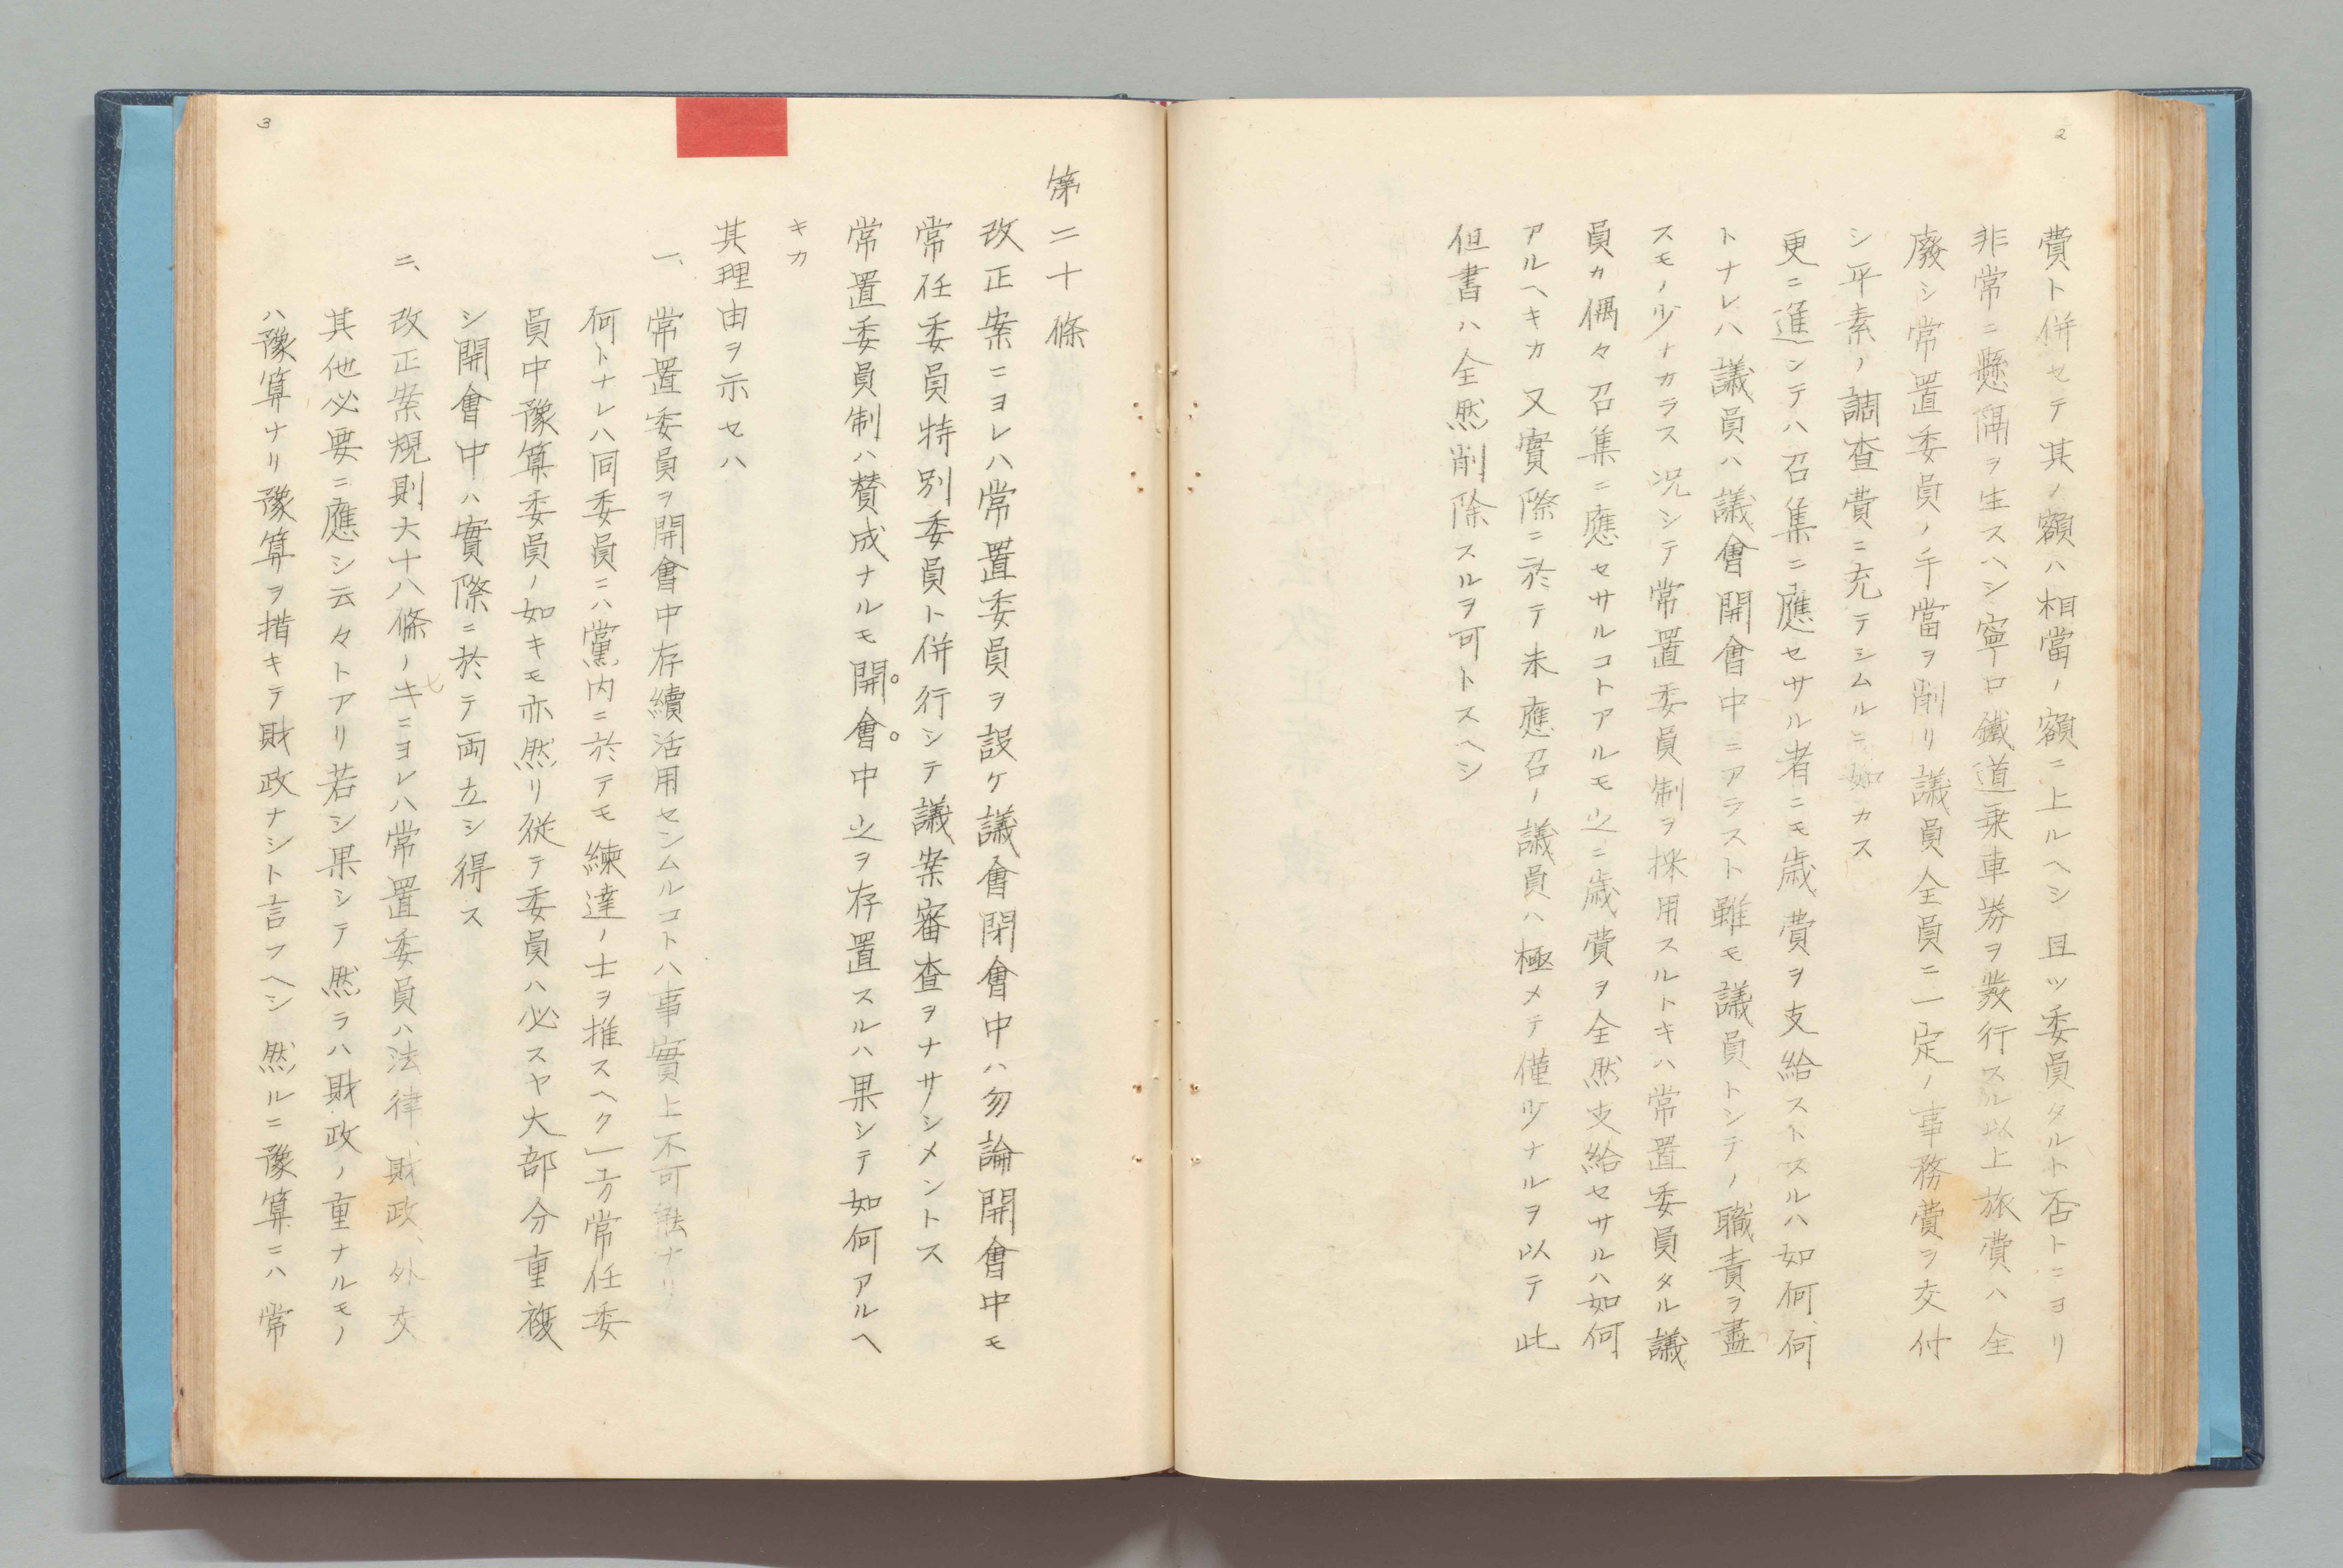 2
費ト併セテ其ノ額ハ相當ノ額ニ上ルヘシ且ツ委員タルト否トニヨリ
非常ニ懸隔ヲ生スヘシ寧ロ鐵道乗車券ヲ發行スル以上旅費ハ全
廢シ常置委員ノ手當ヲ削リ議員全員ニ一定ノ事務費ヲ交付
シ平素ノ調査費ニ充テシムルニ如カス
更ニ進ンテハ召集ニ應セサル者ニモ歳費ヲ支給ストスルハ如何、何
トナレハ議員ハ議會開會中ニアラスト雖モ議員トシテノ職責ヲ盡
スモノ少ナカラス况シテ常置委員制ヲ採用スルトキハ常置委員タル議
員カ偶々召集ニ應セサルコトアルモ之ニ歳費ヲ全然支給セサルハ如何
アルヘキカ又實際ニ於テ未應召ノ議員ハ極メテ僅少ナルヲ以テ此
但書ハ全然削除スルヲ可トスヘシ
3
第二十條
改正案ニヨレハ常置委員ヲ設ケ議會閉會中ハ勿論開會中モ
常任委員特別委員ト併行シテ議案審査ヲナサシメントス
常置委員制ハ賛成ナルモ開會中之ヲ存置スルハ果シテ如何アルヘ
キカ
其理由ヲ示セハ
一、常置委員ヲ開會中存續活用センムルコトハ事實上不可能ナリ
何トナレハ同委員ニハ黨内ニ於テモ練達ノ士ヲ推スヘク一方常任委
員中豫算委員ノ如キモ亦然リ從テ委員ハ必スヤ大部分重複
シ開會中ハ實際ニ於テ両立シ得ス
二、改正案規則大十八條ノ七ニヨレハ常置委員ハ法律、財政、外交
其他必要ニ應シ云々トアリ若シ果シテ然ラハ財政ノ重ナルモノ
ハ豫算ナリ豫算ヲ措キテ財政ナシト言フヘシ然ルニ豫算ニハ常